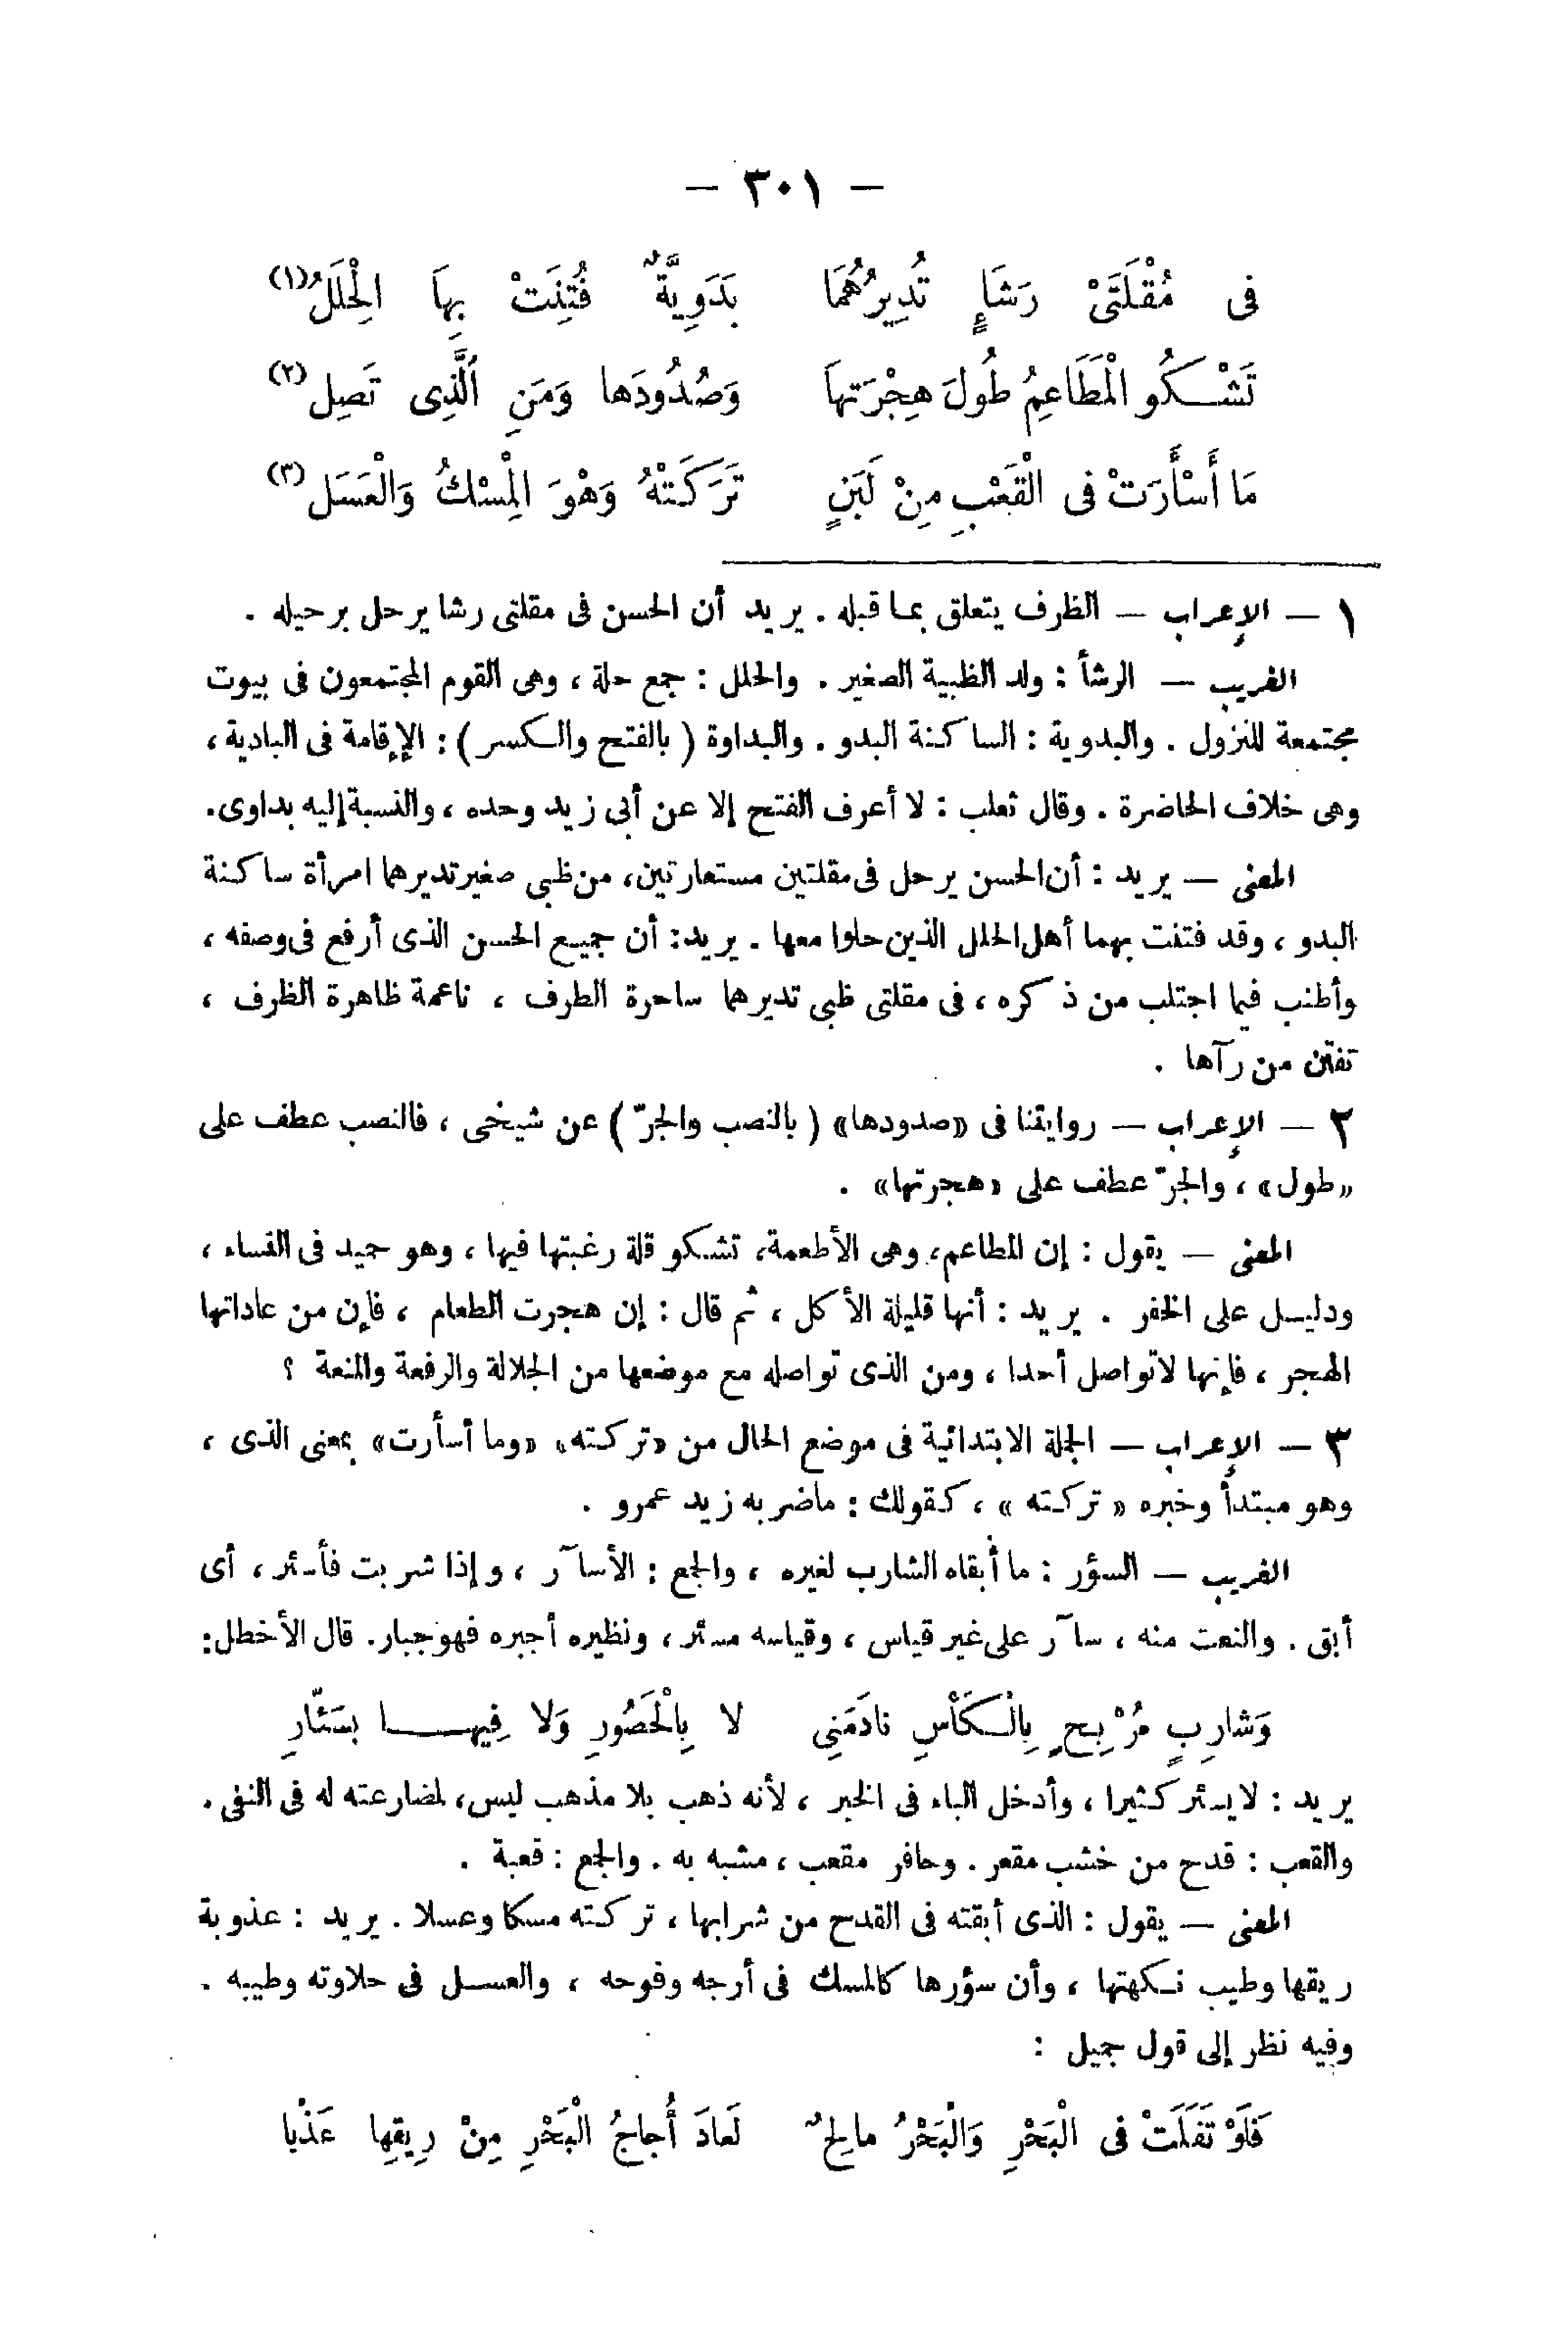 — ٣٠١ —
فى مُقْلَتَىْ رَشَإٍ تُدِيرُهُمَا بَدَوِيَّةٌ فُتِنَتْ بِهاَ الْحِلَلُ(١)
تَشْكُو الْمَطَاعِمُ طُولَ هِجْرَتِهاَ وَصُدُودَها وَمَنِ الَّذِى تَصِل(٢)
مَا أَسْأَرَتْ فى الْقَعْبِ مِنْ لَبَنٍ تَرَكَتْهُ وَهْوَ الْمِسْكُ وَالْعَسَل(٣)
١ — الإعراب — الظرف يتعلق بما قبله . يريد أن الحسن فى مقلتى رشا يرحل برحيله .
الغريب — الرشأ : ولد الظبية الصغير . والحلل : جمع حلة ، وهى القوم المجتمعون فى بيوت
مجتمعة للنزول . والبدوية : الساكنة البدو . والبداوة ( بالفتح والكسر ) : الإقامة فى البادية ،
وهى خلاف الحاضرة . وقال ثعلب : لا أعرف الفتح إلا عن أبى زيد وحده ، والنسبة إليه بداوى.
المعنى — يريد : أن الحسن يرحل فى مقلتين مستعارتين، من ظبى صغير تديرهما امرأة ساكنة
البدو ، وقد فتنت بهما أهل الحلل الذين حلوا معها . يريد: أن جميع الحسن الذى أرفع فى وصفه ،
وأطنب فيما اجتلب من ذكره ، فى مقلتى ظبى تديرهما ساحرة الطرف ، ناعمة ظاهرة الظرف ،
تفتن من رآها .
٢ — الإعراب — روايتنا فى «صدودها» ( بالنصب والجرّ ) عن شيخى ، فالنصب عطف على
«طول» ، والجرّ عطف على «هجرتها» .
المعنى — يقول : إن المطاعم، وهى الأطعمة، تشكو قلة رغبتها فيها ، وهو حميد فى النساء ،
ودليل على الخفر . يريد : أنها قليلة الأكل ، ثم قال : إن هجرت الطعام ، فإن من عاداتها
الهجر ، فإنها لاتواصل أحدا ، ومن الذى تواصله مع موضعها من الجلالة والرفعة والمنعة ؟
٣ — الإعراب — الجملة الابتدائية فى موضع الحال من «تركته» «وما أسأرت» بمعنى الذى ،
وهو مبتدأ وخبره « تركته » ، كقولك : ماضربه زيد عمرو .
الغريب — السؤر : ما أبقاه الشارب لغيره ، والجمع : الأسآر ، وإذا شربت فأسئر ، أى
أبق . والنعت منه ، سآر على غير قياس ، وقياسه مسئر ، ونظيره أجبره فهو جبار. قال الأخطل:
وَشارِبٍ مُرْبِحٍ بِالْكَأْسِ نادَمَنِى لا بِالْحَصُورِ وَلا فِيها بِسَئّارِ
يريد : لايسئر كثيرا ، وأدخل الباء فى الخبر ، لأنه ذهب بلا مذهب ليس، لمضارعته له فى النفى .
والقعب : قدح من خشب مقعر . وحافر مقعب ، مشبه به . والجمع : قعبة .
المعنى — يقول : الذى أبقته فى القدح من شرابها ، تركته مسكا وعسلا . يريد : عذوبة
ريقها وطيب نكهتها ، وأن سؤرها كالمسك فى أرجه وفوحه ، والعسل فى حلاوته وطيبه .
وفيه نظر إلى قول جميل :
فَلَوْ تَفَلَتْ فى الْبَحْرِ وَالْبَحْرُ مالِحٌ لَعادَ أُجاجُ الْبَحْرِ مِنْ رِيقِها عَذْبا